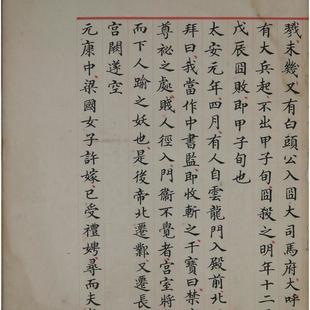 戮未幾又有白頭公入囧大司馬府大呼
有大兵起不出甲子旬囧殺之明年十二
戊辰囧敗即甲子旬也
太安元年四月有人自雲龍門入殿前北
拜曰我當作中書監即收斬之干寶曰禁
尊祕之處賤人徑入門衛不覺者宮室將
而下人踰之妖也是後帝北遷鄴又遷長
宮闕遂空
元康中梁國女子許嫁已受禮娉尋而夫